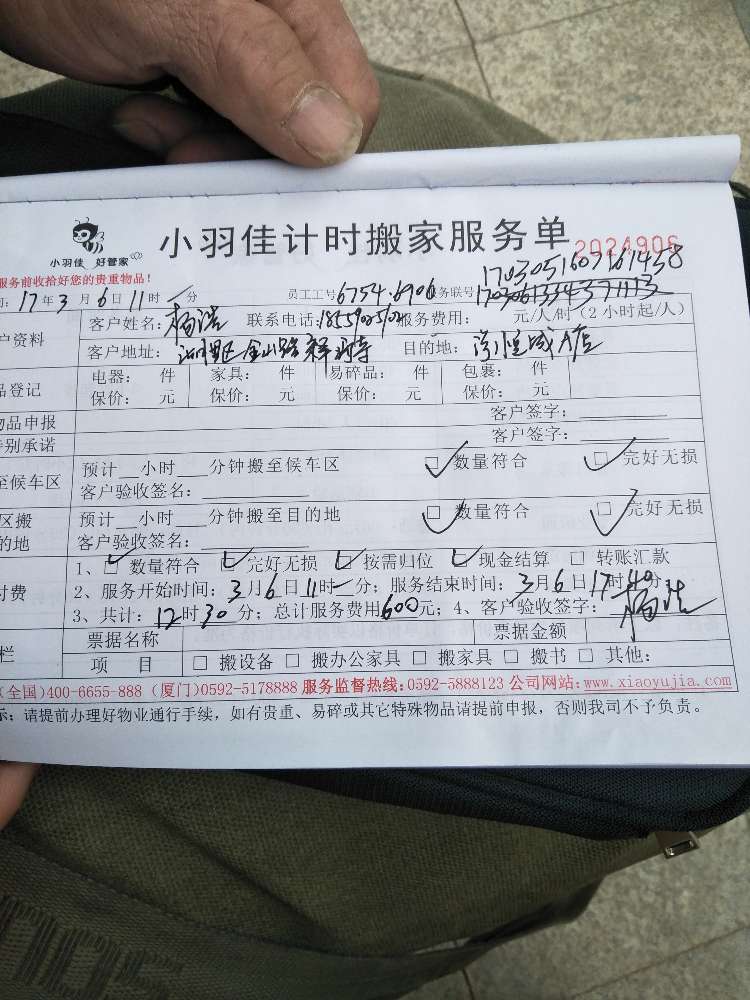 小羽佳 好管家
小羽佳计时搬家服务单 2024906
服务前收拾好您的贵重物品!
1703051607161458
17年3月6日11时 分 员工工号6754.6906 务联号1703061334371113
户资料 客户姓名:杨浩 联系电话: 服务费用: 元/人/时(2小时起/人)
客户地址: 目的地:
品登记 电器: 件 家具: 件 易碎品: 件 包裹: 件
保价: 元 保价: 元 保价: 元 保价: 元
物品申报 客户签字:
特别承诺 客户签字:
至候车区 预计 小时 分钟搬至候车区 □数量符合 □完好无损
客户验收签名:
区搬 预计 小时 分钟搬至目的地 □数量符合 □完好无损
的地 客户验收签名:
1、□数量符合 □完好无损 □按需归位 □现金结算 □转账汇款
付费 2、服务开始时间:3月6日11时 分;服务结束时间:3月6日17时40分
3、共计:12时30分;总计服务费用600元;4、客户验收签字:杨浩
栏 票据名称 票据金额
项 目 □搬设备 □搬办公家具 □搬家具 □搬书 □其他:
(全国)400-6655-888 (厦门)0592-5178888 服务监督热线:0592-5888123 公司网站:www.xiaoyujia.com
示:请提前办理好物业通行手续,如有贵重、易碎或其它特殊物品请提前申报,否则我司不予负责。